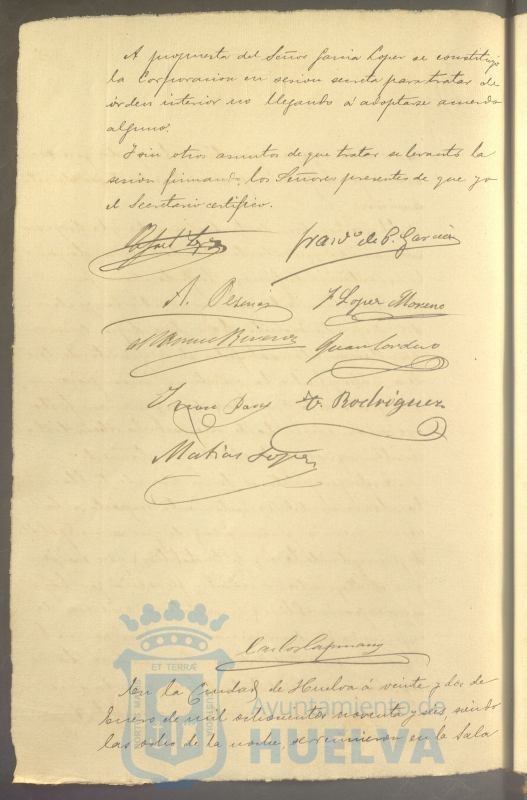 A propuesta del Señor Garcia Lopez se constituyó
la Corporacion en sesion secreta para tratar de
órden interior no llegando á adoptarse acuerdo
alguno.
Y sin otros asuntos de que tratar se levantó la
sesion firmando los Señores presentes de que yo
el Secretario certifico.
Rafael
Franco de P. Garcia
A.
J. Lopez Moreno
Manuel Rivero
Juan Cordero
Juan
Rodriguez
Matias Lopez
Carlos
En la Ciudad de Huelva á veinte y dos de
Enero de mil ochocientos noventa y seis, siendo
las ocho de la noche, se reunieron en la Sala
ET TERRÆ
PORTUS MARIS
CUSTODIA
Ayuntamiento de
HUELVA